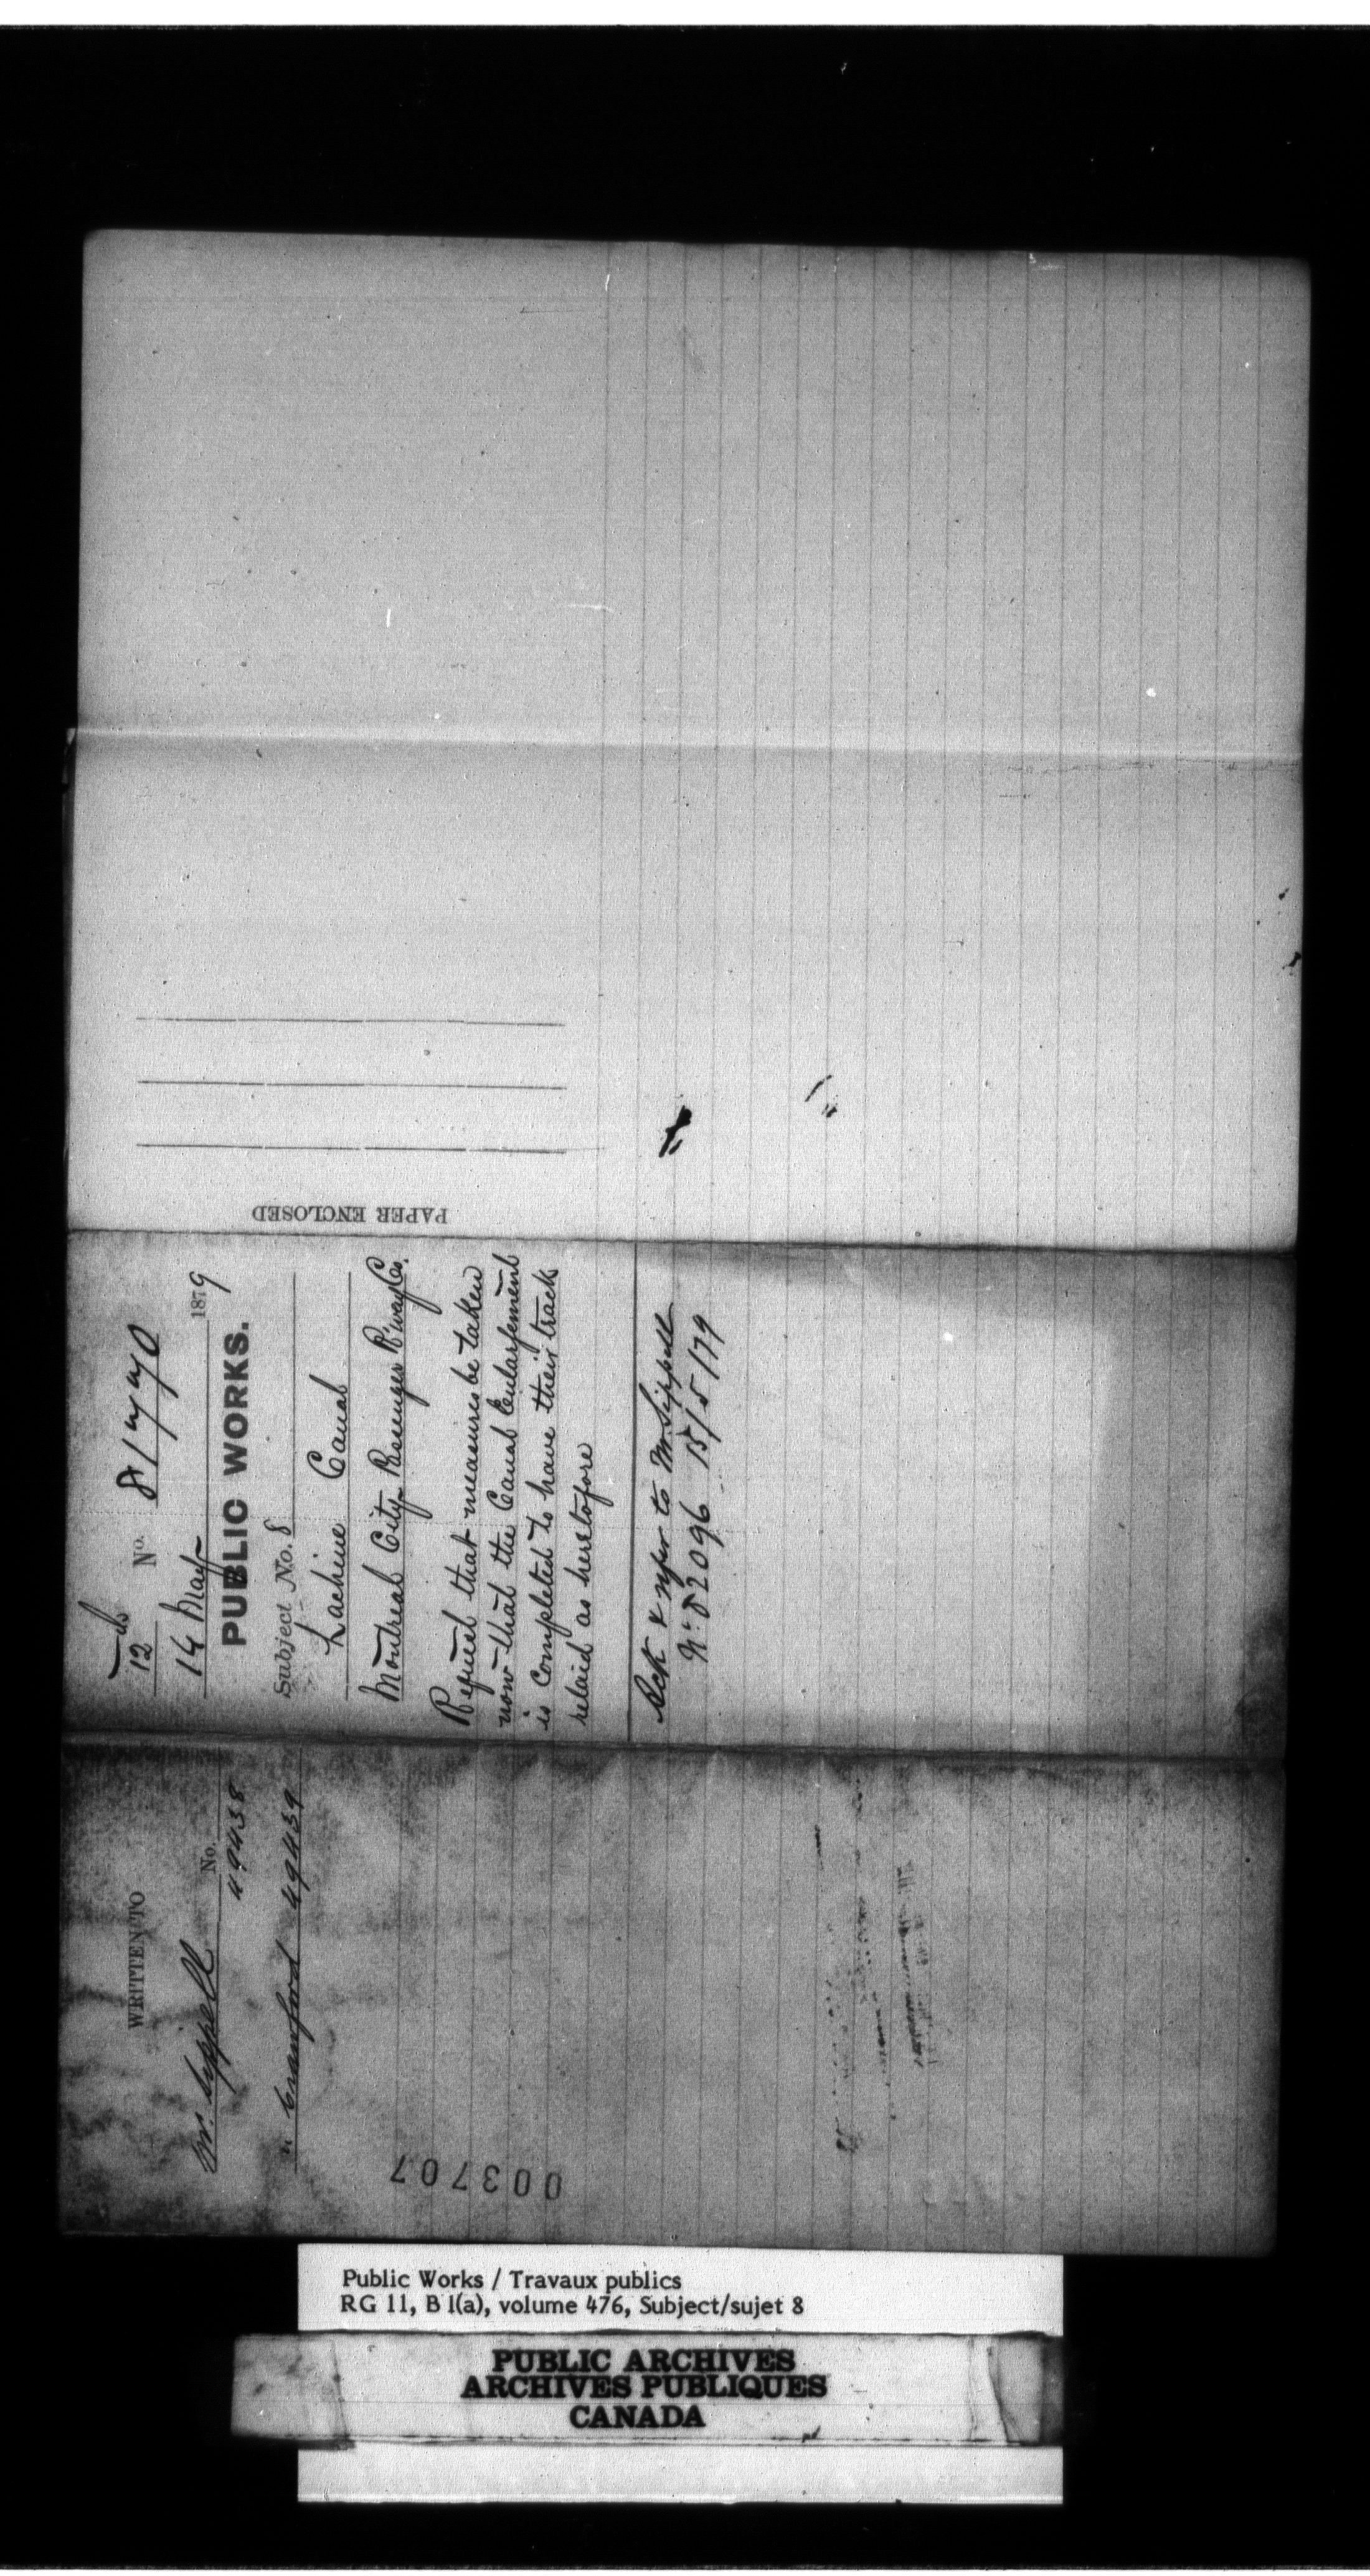 12 No. 81770
14 May 1879
PUBLIC WORKS.
Subject No. 8
Lachine Canal
Montreal City Passenger R'way Co.
Request that measures be taken
now that the Canal Enlargement
is completed to have their track
relaid as heretofore
Ack & refer to Mr. Sippell
No. 82096 15/5/79
PAPER ENCLOSED
WRITTEN TO
No.
Mr. Sippell 49438
" Crawford 49439
003707
Public Works / Travaux publics
RG 11, B 1(a), volume 476, Subject/sujet 8
PUBLIC ARCHIVES
ARCHIVES PUBLIQUES
CANADA